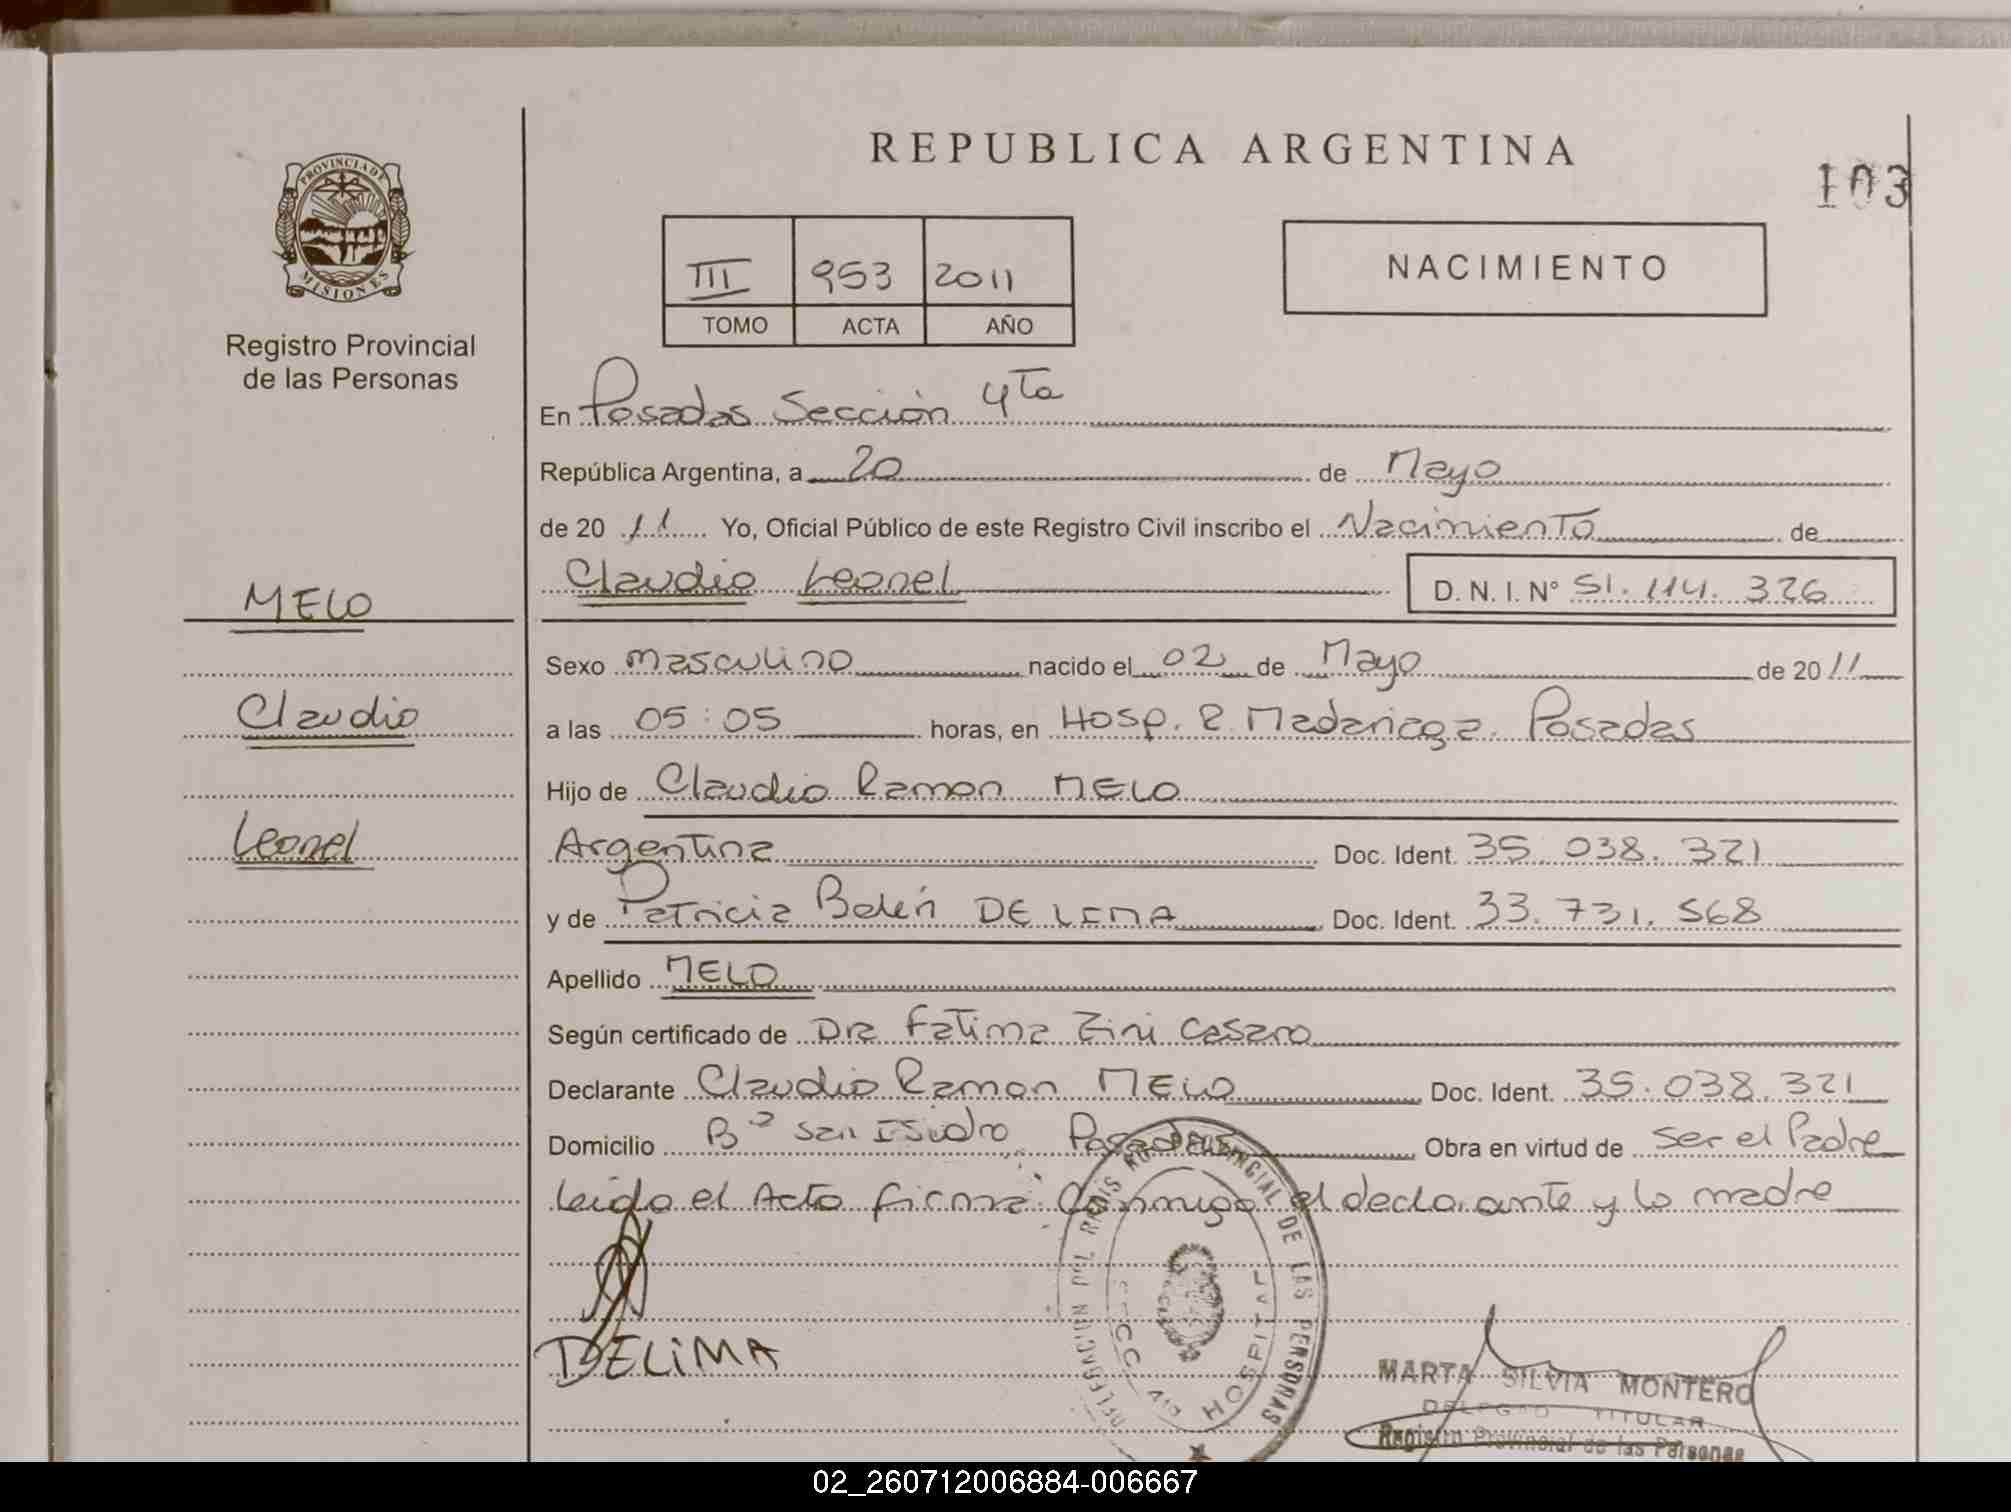 REPUBLICA ARGENTINA
103
PROVINCIA DE
MISIONES
Registro Provincial
de las Personas
III 953 2011
TOMO ACTA AÑO
NACIMIENTO
En Posadas Sección 4ta
República Argentina, a 20 de Mayo
de 2011 Yo, Oficial Público de este Registro Civil inscribo el Nacimiento de
Claudio Leonel D. N. I. N° 51.114.326
MELO
Claudio
Leonel
Sexo masculino nacido el 02 de Mayo de 2011
a las 05:05 horas, en Hosp. R. Madariaga. Posadas
Hijo de Claudio Ramon MELO
Argentina Doc. Ident. 35.038.321
y de Patricia Belén DE LIMA Doc. Ident. 33.731.568
Apellido MELO
Según certificado de Dra Fatima Zini Casaro
Declarante Claudio Ramon MELO Doc. Ident. 35.038.321
Domicilio B° San Isidro Posadas Obra en virtud de ser el Padre
leido el Acto firma conmigo el declarante y la madre
DELEGACION DEL REGISTRO PROVINCIAL DE LAS PERSONAS
HOSPITAL
DELIMA
MARTA SILVIA MONTERO
DELEGAD TITULAR
Registro Provincial de las Personas
02_260712006884-006667